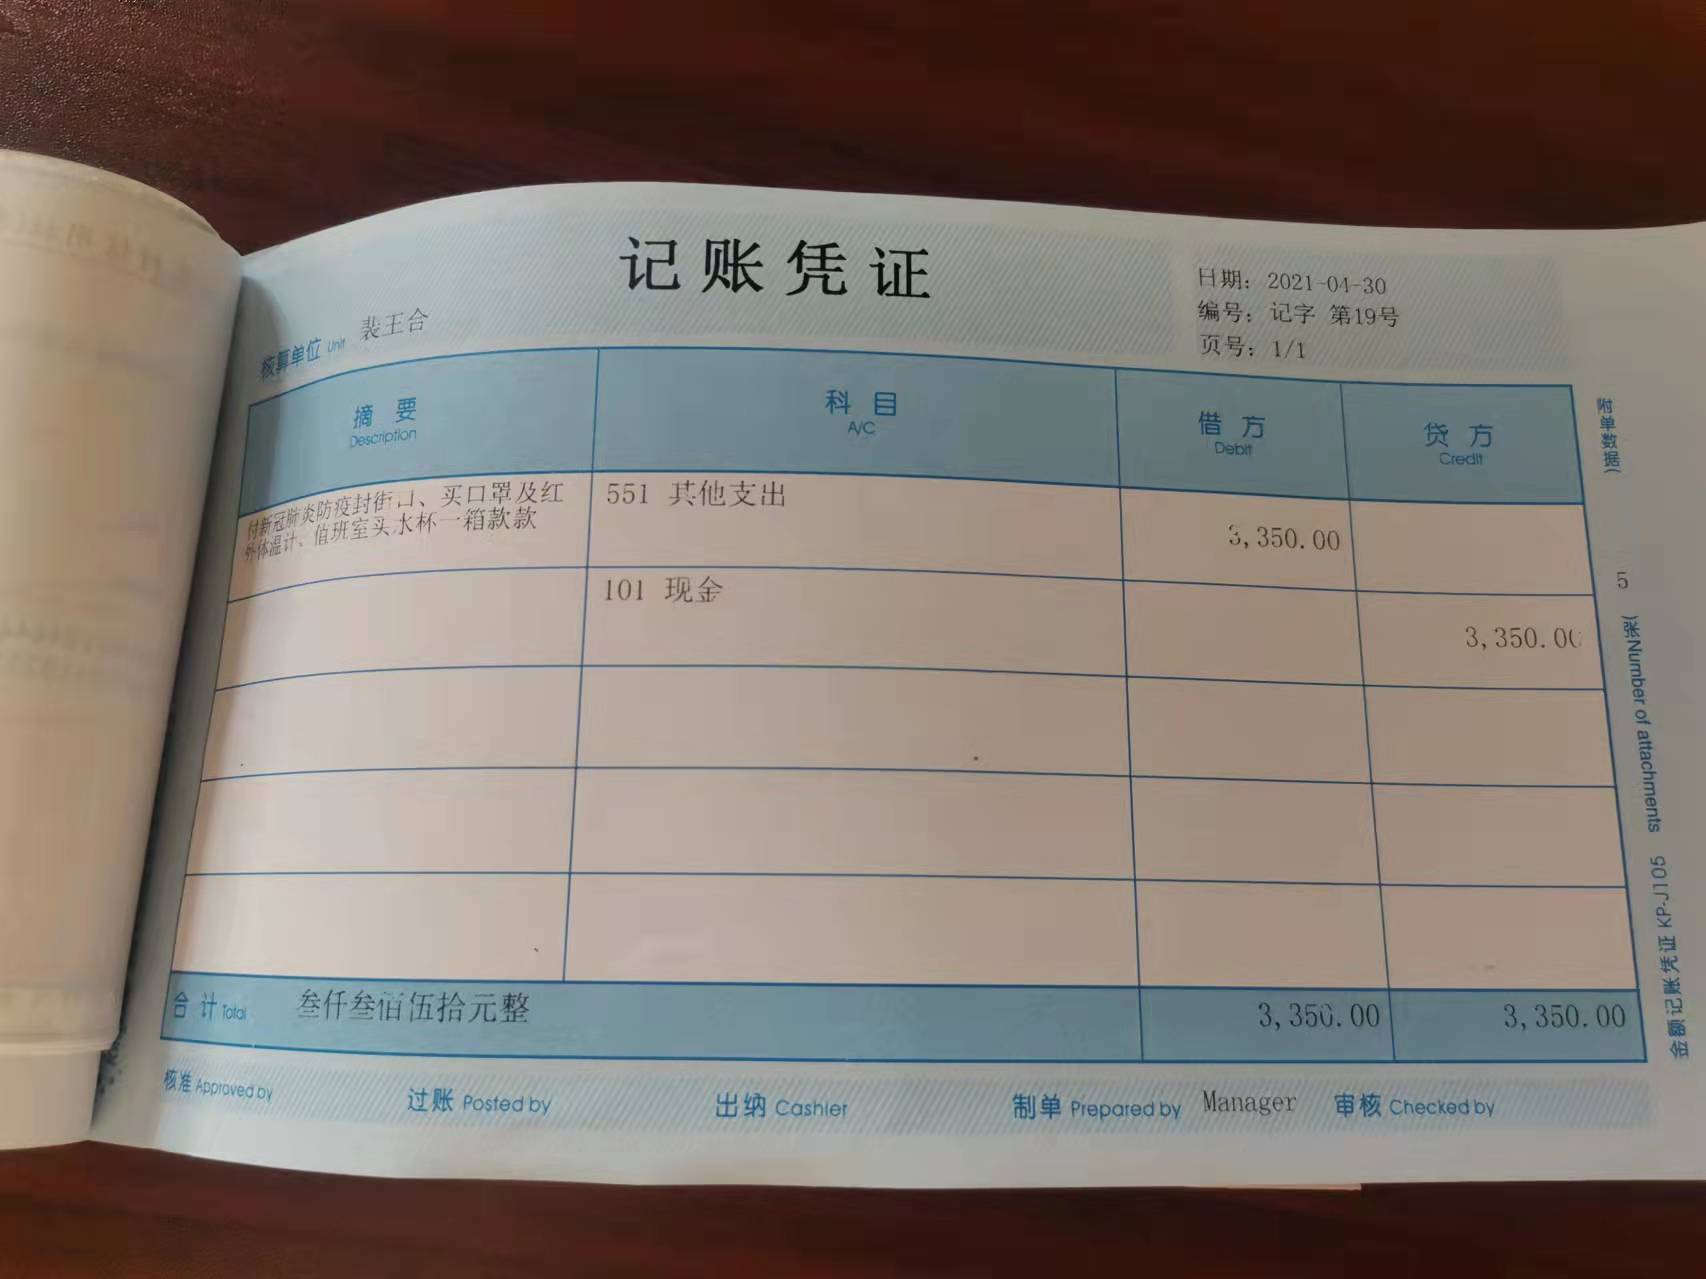 记账凭证
日期: 2021-04-30
编号: 记字 第19号
页号: 1/1
核算单位 Unit 裴王合
摘要 科目 借方 贷方
Description A/C Debit Credit
付新冠肺炎防疫封街口、买口罩及红 551 其他支出 3,350.00
外体温计、值班室买水杯一箱款款
101 现金 3,350.00
合计 Total 叁仟叁佰伍拾元整 3,350.00 3,350.00
核准 Approved by 过账 Posted by 出纳 Cashier 制单 Prepared by Manager 审核 Checked by
附单数据( 5 )张 Number of attachments
金额记账凭证 KP-J105